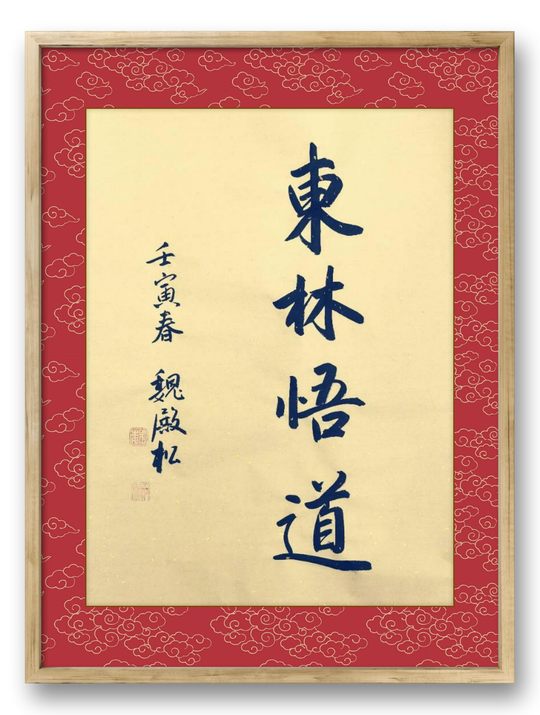 東林悟道
壬寅春 魏殿松